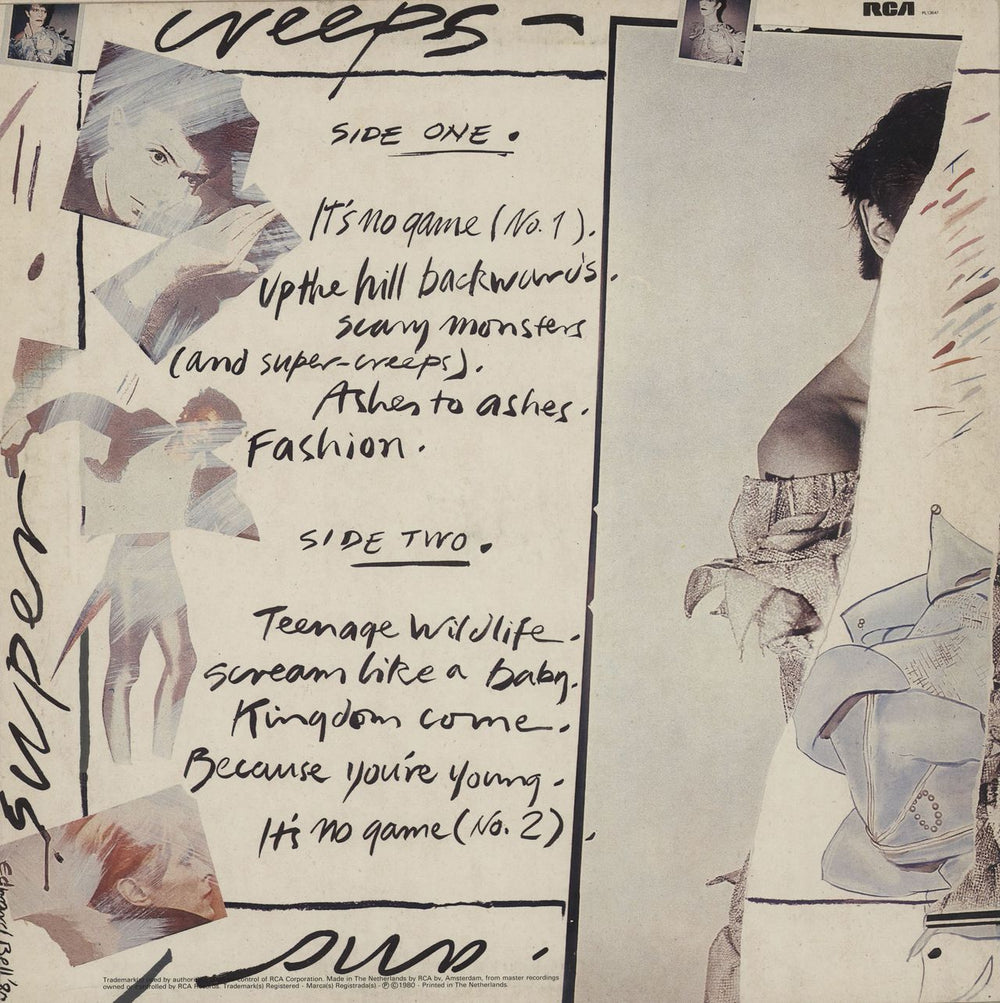 creeps-
RCA
SIDE ONE.
It's no game (No. 1).
Up the hill backwards.
scary monsters
(and super-creeps).
Ashes to ashes.
Fashion.
SIDE TWO.
Teenage Wildlife.
scream like a baby.
Kingdom come.
Because you're young.
It's no game (No. 2).
super
Edward Bell
Trademark used by control of RCA Corporation. Made in The Netherlands by RCA bv, Amsterdam, from master recordings
owned or controlled by RCA Trademark(s) Registered · Marca(s) Registrada(s) · ℗ © 1980 · Printed in The Netherlands.